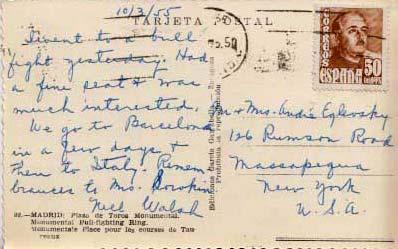 10/2/55
TARJETA POSTAL
I went to a bull
fight yesterday. Had
a fine seat & was
much interested.
We go to Barcelona
in a few days &
then to Italy. Remem-
brances to Mrs.
Nell Walsh
MADRID: Plaza de Toros Monumental.
Monumental Bull-fighting Ring.
Monumentale Place pour les courses de Tau-
reaux
Ediciones García Garrabella - Zaragoza
Prohibida la reproducción
CORREOS
ESPAÑA
50
CENTS
Mr & Mrs. André Eglevsky
126 Rumson Road
Massapequa
New York
U.S.A.